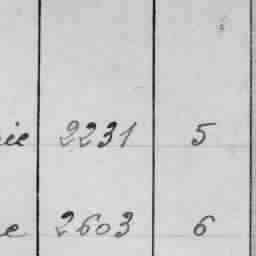 2231 5
2603 6